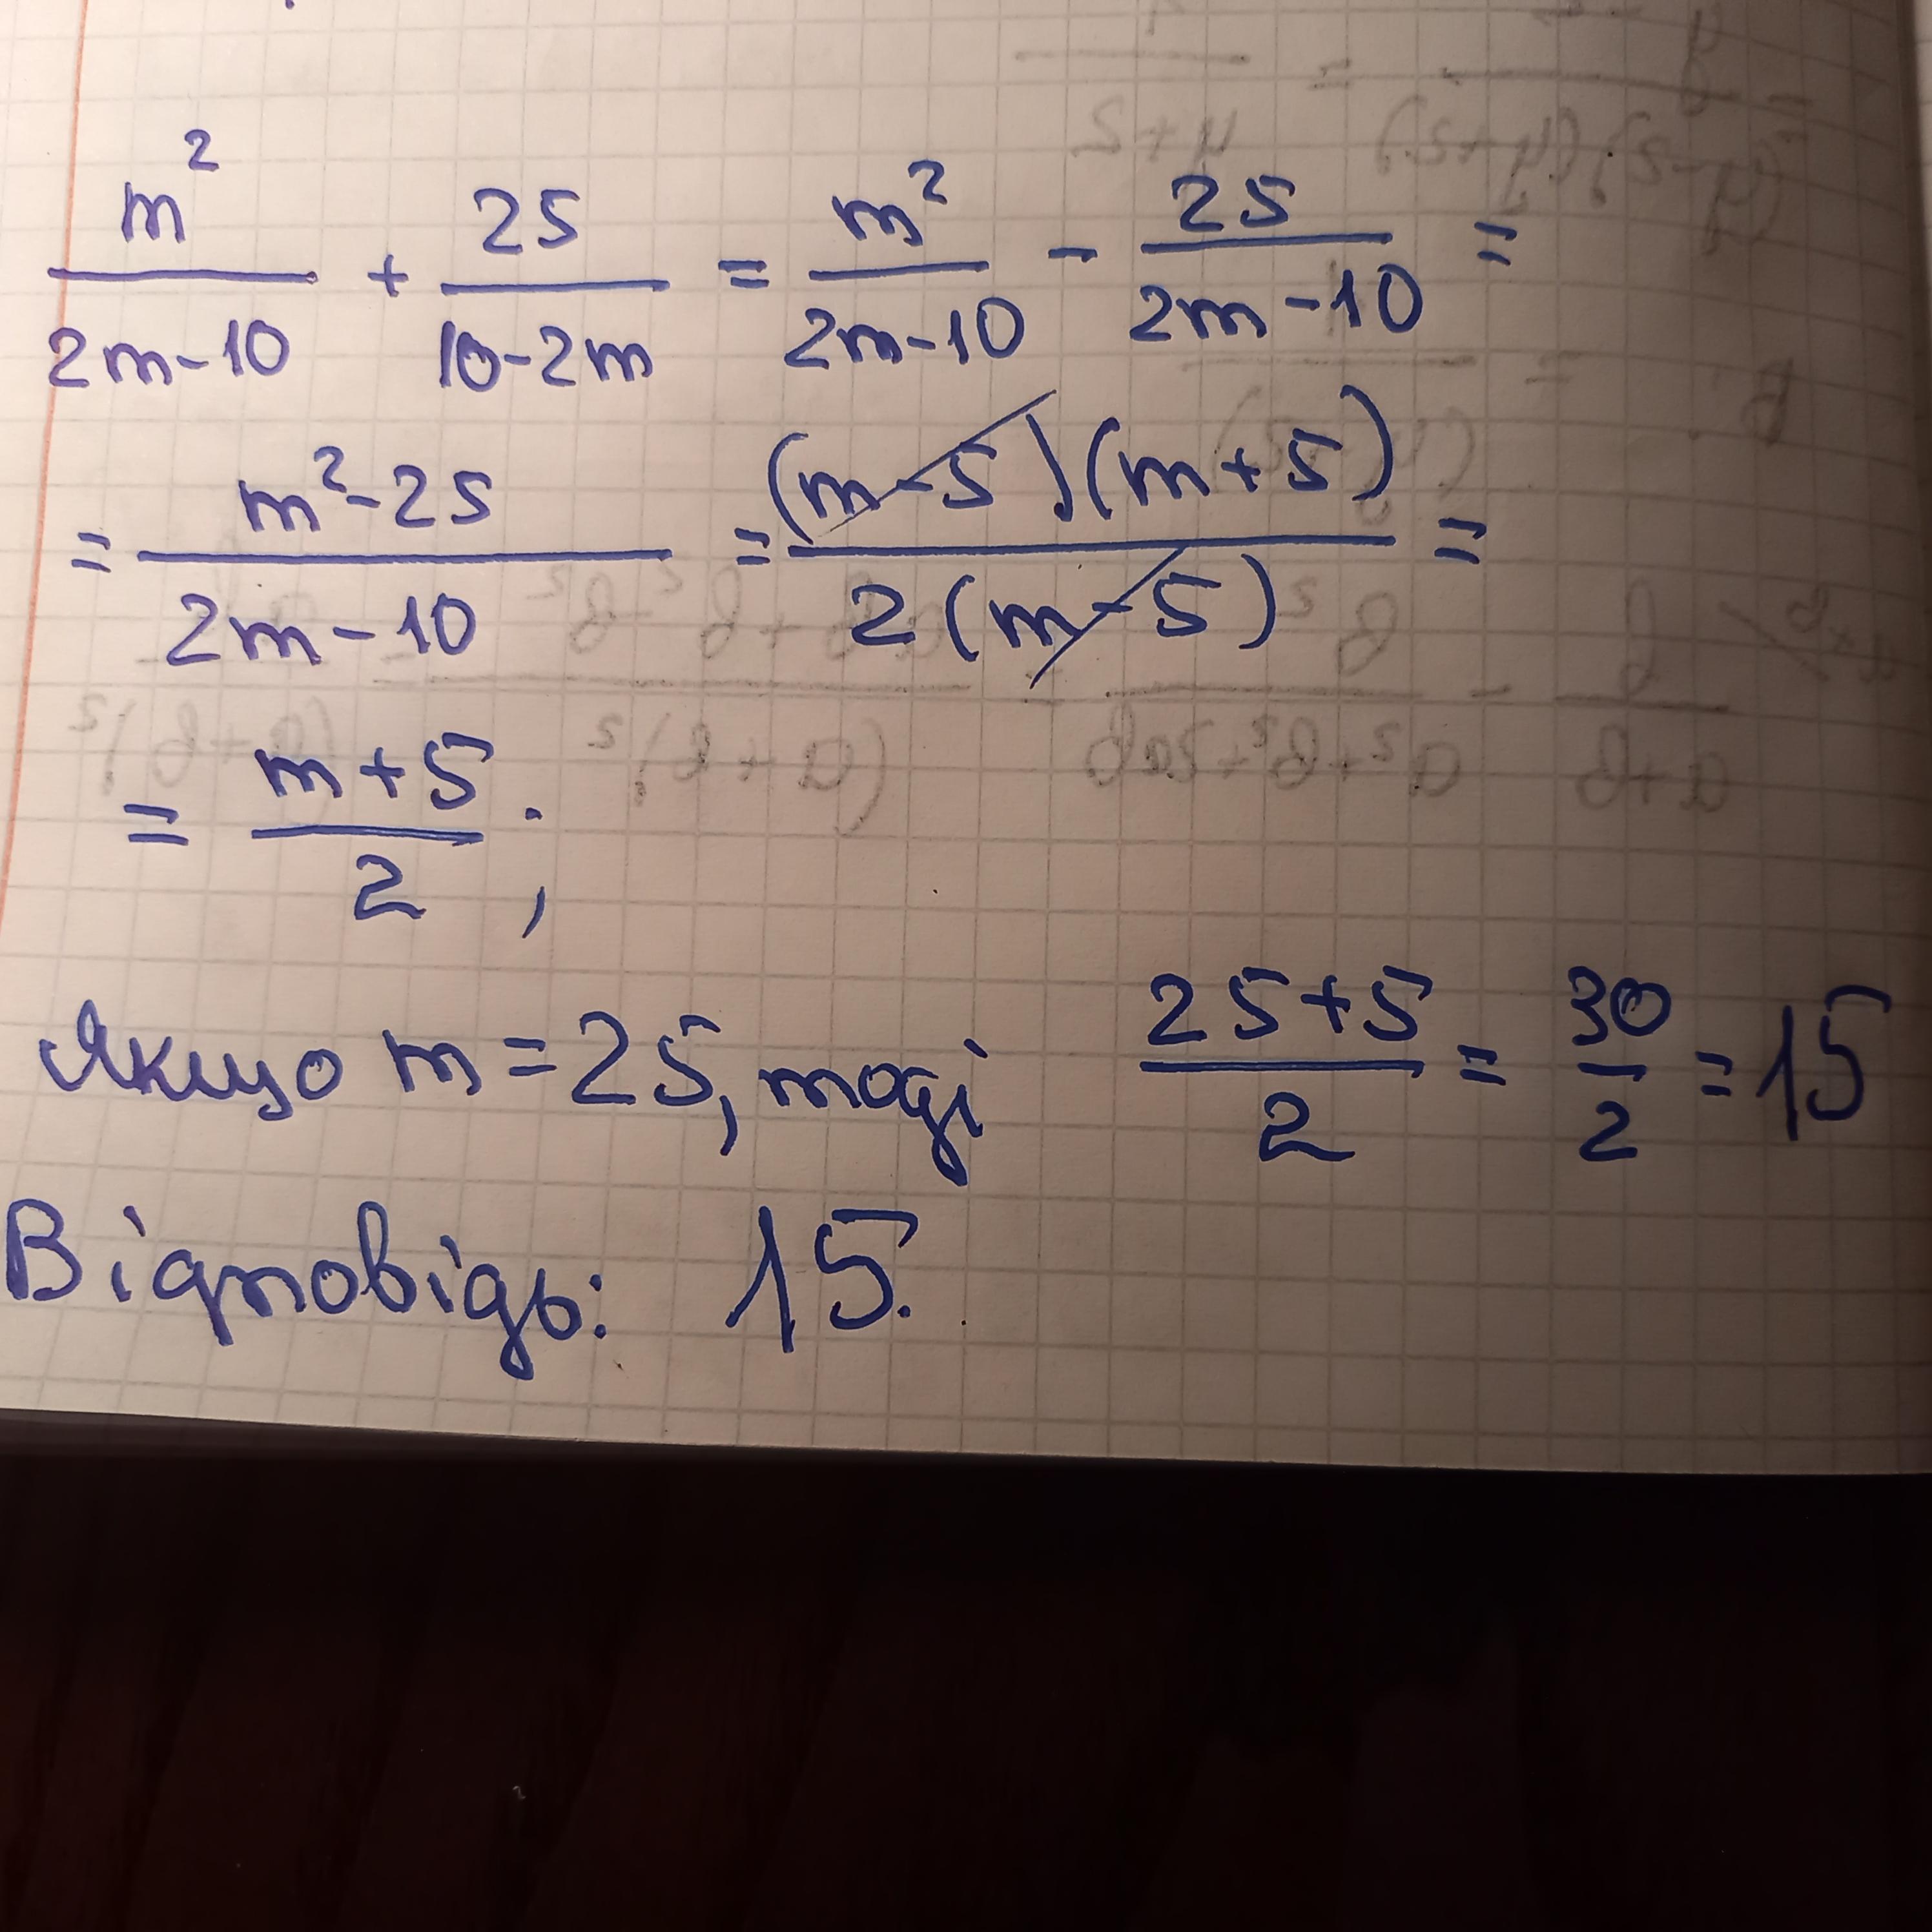 m²/(2m-10) + 25/(10-2m) = m²/(2m-10) - 25/(2m-10) =
= (m²-25)/(2m-10) = (m-5)(m+5)/2(m-5) =
= (m+5)/2 ;
Якщо m=25, тоді (25+5)/2 = 30/2 = 15
Відповідь: 15.